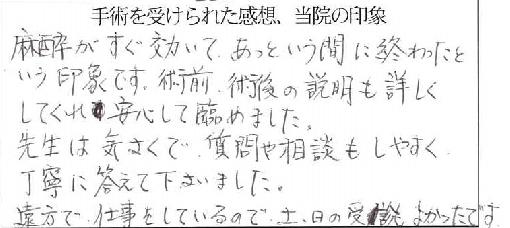 手術を受けられた感想、当院の印象
麻酔がすぐ効いて、あっという間に終わったと
いう印象です。術前、術後の説明も詳しく
してくれ安心して臨めました。
先生は気さくで、質問や相談もしやすく、
丁寧に答えて下さいました。
遠方で、仕事をしているので、土、日の受診よかったです